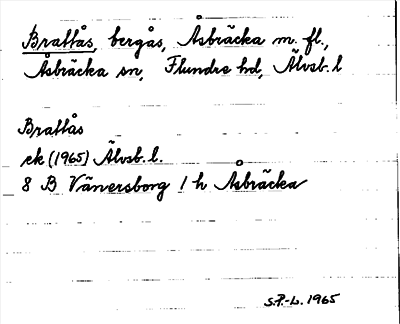 Brattås, bergås, Åsbräcka m. fl.,
Åsbräcka sn, Flundre hd, Älvsb. l
Brattås
ek (1965) Älvsb. l.
8 B Vänersborg 1 h Åsbräcka
S.P.-L. 1965